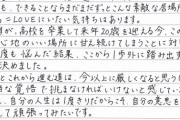 も、できることならまだまだずっとこんな素敵な居場所
=LOVEにいたい気持ちはあります。
が、高校を卒業して来年20歳を迎える今、この
心地のいい場所に甘え続けてしまうことに対
度も悩んだ結果、ここから1歩外に踏み出す
決めました。
とこれから進む道は、今以上に厳しくなると思うし
な覚悟で挑まなければいけないと感じてい
、自分の人生は1度きりだからこそ、自分の意志を
て頑張ってみたいです。